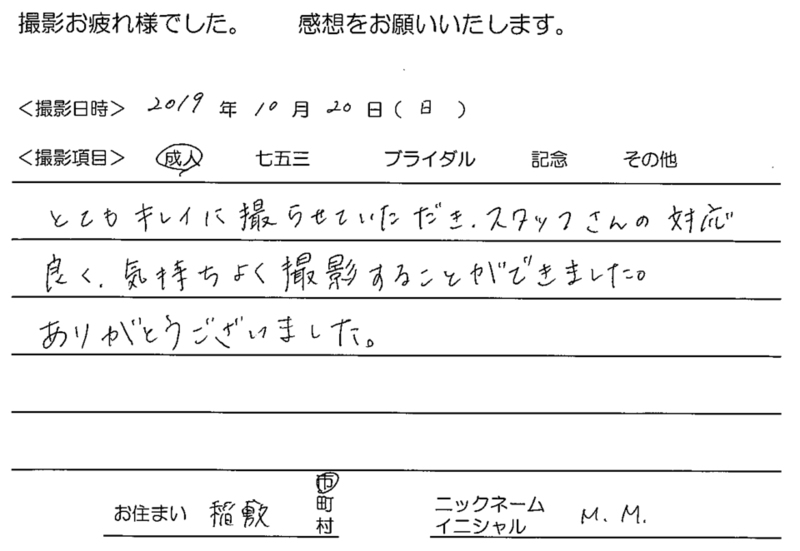 撮影お疲れ様でした。　感想をお願いいたします。
＜撮影日時＞ 2019 年 10 月 20 日（ 日 ）
＜撮影項目＞ 成人 七五三 ブライダル 記念 その他
とてもキレイに撮らせていただき、スタッフさんの対応
良く、気持ちよく撮影することができました。
ありがとうございました。
お住まい 稲敷 市 町 村
ニックネーム イニシャル M. M.